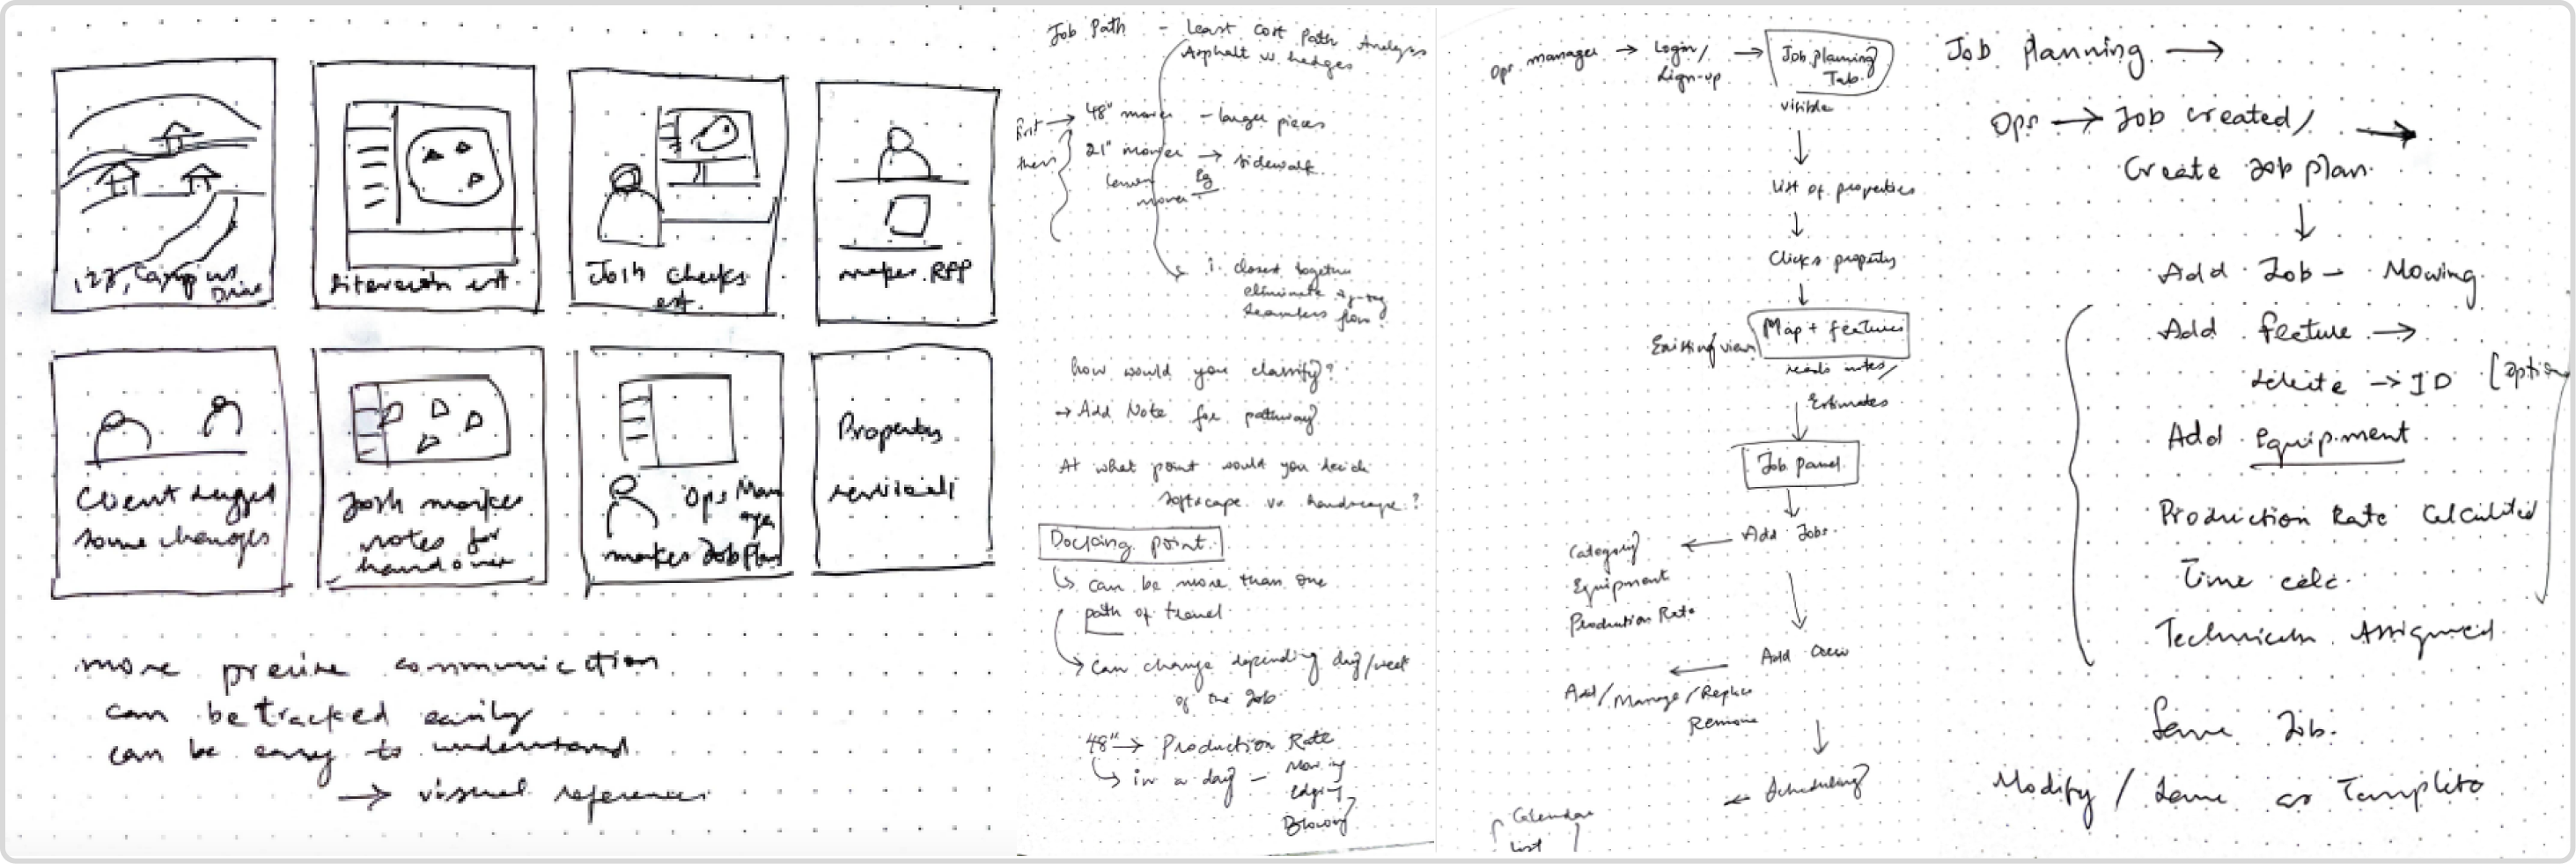 123, Campus
Drive
est.
Josh checks
est.
makes RFP
Client suggest
some changes
Josh makes
notes for
handover
Ops Man
ager
makes Job Plan
Property
more precise communication
can be tracked easily
can be easy to understand
→ visual references
Job Path - Least Cost Path Analysis
Asphalt vs hedges
first → 48" mower - larger pieces
then 21" mower → sidewalk
Eg
mower
1. closest together
eliminate zig-zag
seamless flow
how would you classify?
→ Add Note for pathway
At what point would you decide
softscape vs hardscape?
Docking point
can be more than one
path of travel
can change depending day/week
of the Job
48" → Production Rate
in a day - Mowing
edging
Blowing
Ops manager → Login/
Sign-up
→ Job planning
Tab
visible
List of properties
Clicks property
Existing view
Map + features
reads notes/
Estimates
Job panel
Add Jobs
Category
Equipment
Production Rate
Add Crew
Add/Manage/Replace
Remove
Scheduling
Calendar
List
Job Planning →
Ops → Job created/ →
Create Job plan
Add Job - Mowing
Add feature →
→ ID (option
Add Equipment
Production Rate Calculated
Time calc.
Technician Assigned
Save Job.
Modify / Save as Template